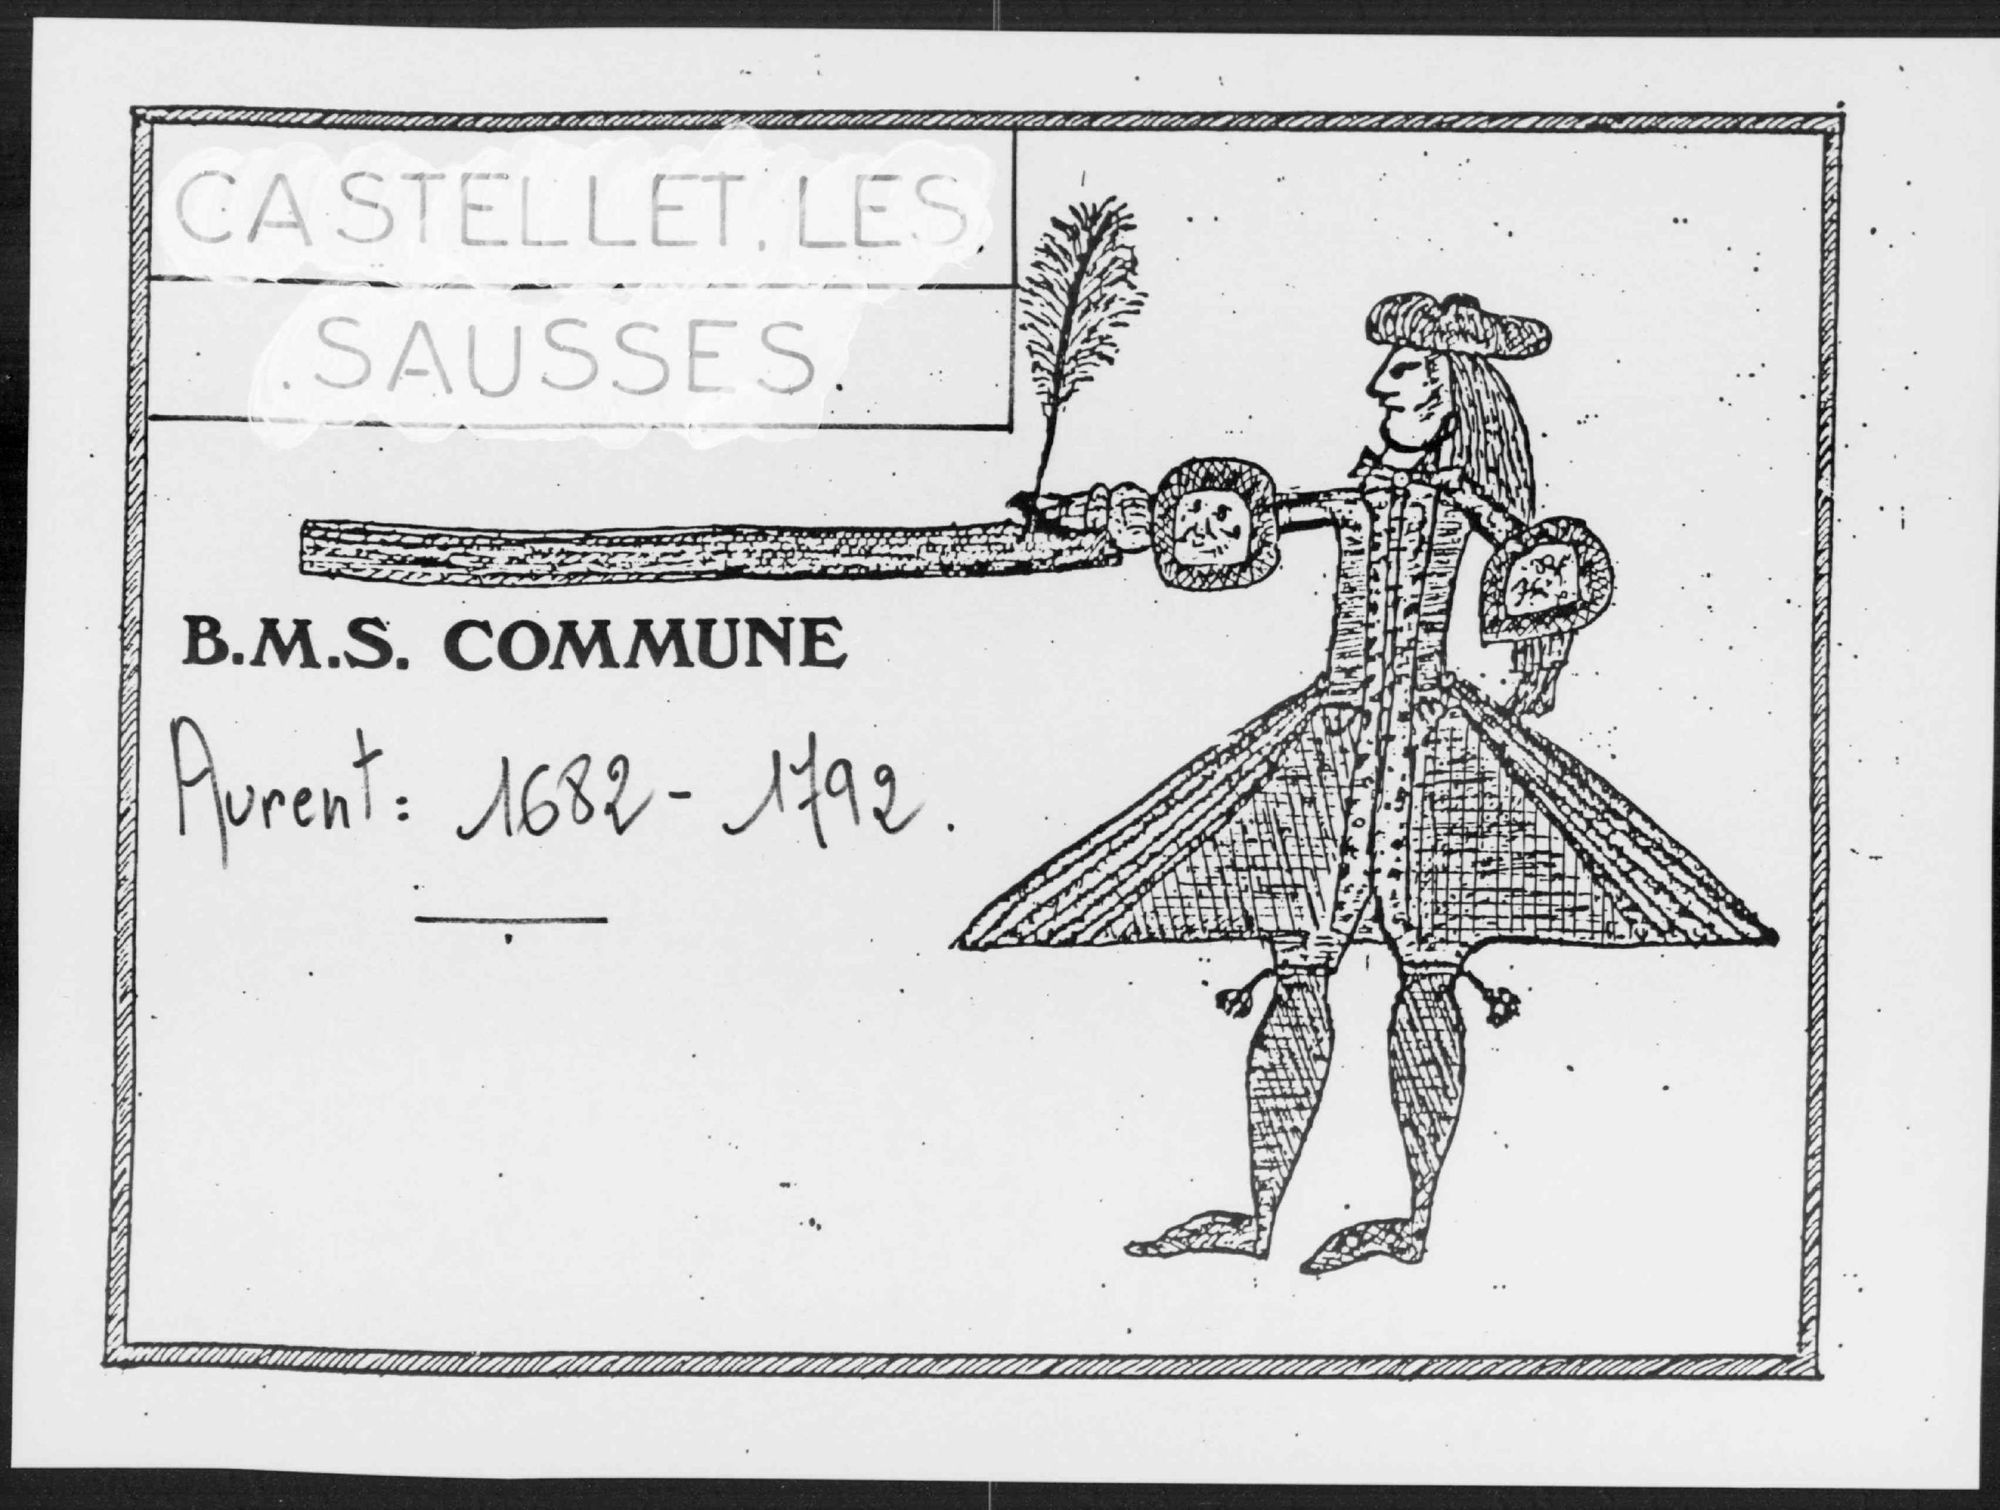 CASTELLET.LES.
.SAUSSES.
B.M.S. COMMUNE
Aurent: 1682 - 1792.